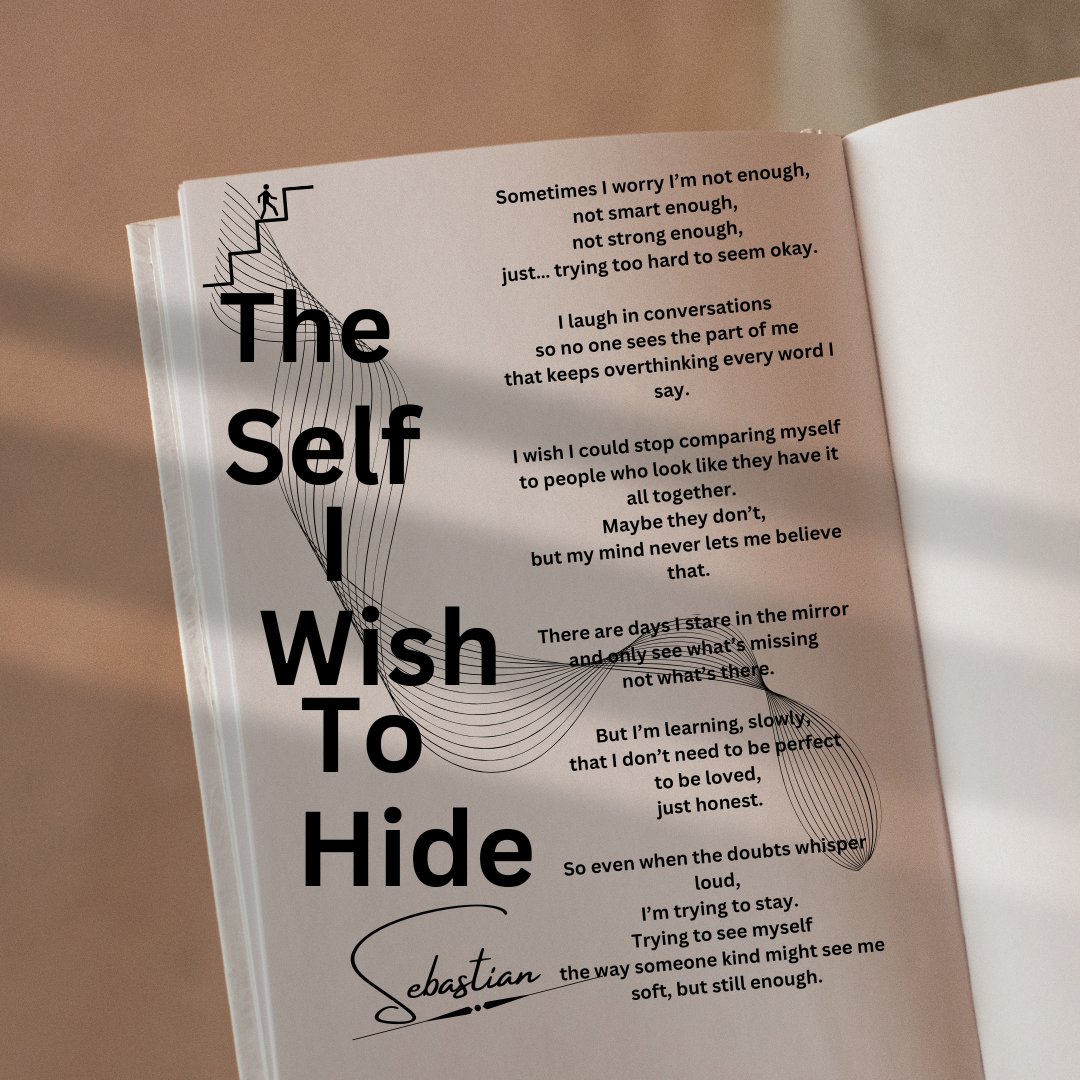 The
Self
I
Wish
To
Hide
Sebastian
Sometimes I worry I’m not enough,
not smart enough,
not strong enough,
just... trying too hard to seem okay.
I laugh in conversations
so no one sees the part of me
that keeps overthinking every word I
say.
I wish I could stop comparing myself
to people who look like they have it
all together.
Maybe they don’t,
but my mind never lets me believe
that.
There are days I stare in the mirror
and only see what’s missing
not what’s there.
But I’m learning, slowly,
that I don’t need to be perfect
to be loved,
just honest.
So even when the doubts whisper
loud,
I’m trying to stay.
Trying to see myself
the way someone kind might see me
soft, but still enough.